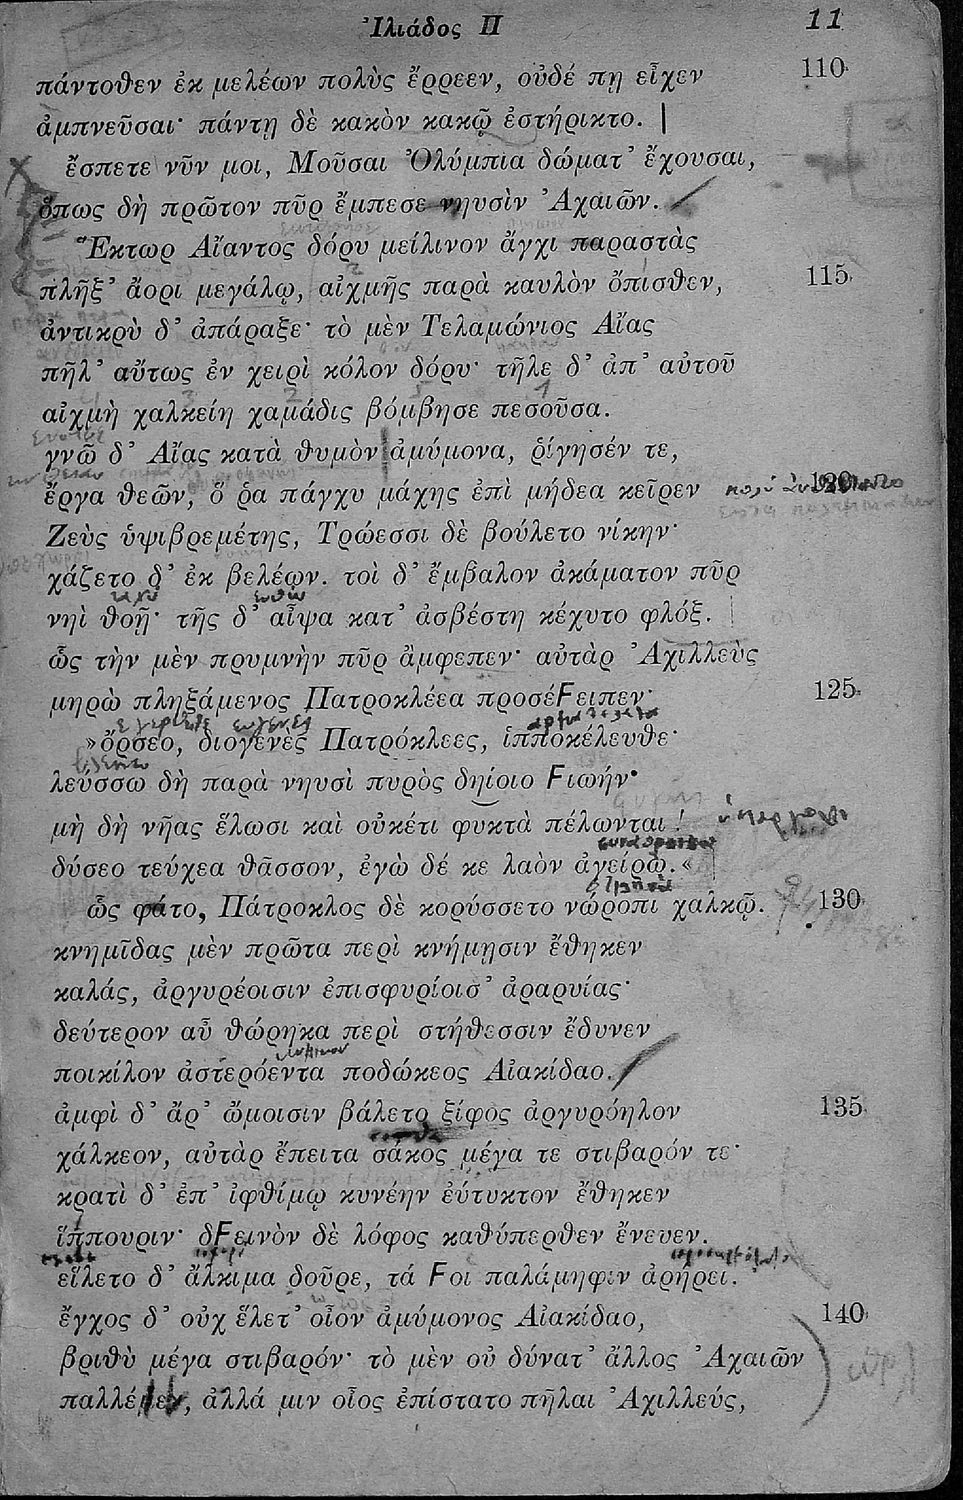 Ἰλιάδος Π 11
πάντοθεν ἐκ μελέων πολὺς ἔρρεεν, οὐδέ πῃ εἶχεν 110
ἀμπνεῦσαι· πάντῃ δὲ κακὸν κακῷ ἐστήρικτο.
ἔσπετε νῦν μοι, Μοῦσαι Ὀλύμπια δώματ’ ἔχουσαι,
ὅπως δὴ πρῶτον πῦρ ἔμπεσε νηυσὶν Ἀχαιῶν.
Ἕκτωρ Αἴαντος δόρυ μείλινον ἄγχι παραστὰς
πλῆξ’ ἄορι μεγάλῳ, αἰχμῆς παρὰ καυλὸν ὄπισθεν, 115
ἀντικρὺ δ’ ἀπάραξε· τὸ μὲν Τελαμώνιος Αἴας
πῆλ’ αὔτως ἐν χειρὶ κόλον δόρυ· τῆλε δ’ ἀπ’ αὐτοῦ
αἰχμὴ χαλκείη χαμάδις βόμβησε πεσοῦσα.
γνῶ δ’ Αἴας κατὰ θυμὸν ἀμύμονα, ῥίγησέν τε,
ἔργα θεῶν, ὅ ῥα πάγχυ μάχης ἐπὶ μήδεα κεῖρεν 120
Ζεὺς ὑψιβρεμέτης, Τρώεσσι δὲ βούλετο νίκην·
χάζετο δ’ ἐκ βελέων. τοὶ δ’ ἔμβαλον ἀκάματον πῦρ
νηὶ θοῇ· τῆς δ’ αἶψα κατ’ ἀσβέστη κέχυτο φλόξ.
ὣς τὴν μὲν πρυμνὴν πῦρ ἄμφεπεν· αὐτὰρ Ἀχιλλεὺς
μηρὼ πληξάμενος Πατροκλέεα προσέϜειπεν· 125
»ὄρσεο, διογενὲς Πατρόκλεες, ἱπποκέλευθε·
λεύσσω δὴ παρὰ νηυσὶ πυρὸς δηίοιο Ϝιωήν·
μὴ δὴ νῆας ἕλωσι καὶ οὐκέτι φυκτὰ πέλωνται!
δύσεο τεύχεα θᾶσσον, ἐγὼ δέ κε λαὸν ἀγείρω.«
ὣς φάτο, Πάτροκλος δὲ κορύσσετο νώροπι χαλκῷ. 130
κνημῖδας μὲν πρῶτα περὶ κνήμῃσιν ἔθηκεν
καλάς, ἀργυρέοισιν ἐπισφυρίοισ’ ἀραρυίας·
δεύτερον αὖ θώρηκα περὶ στήθεσσιν ἔδυνεν
ποικίλον ἀστερόεντα ποδώκεος Αἰακίδαο.
ἀμφὶ δ’ ἄρ’ ὤμοισιν βάλετο ξίφος ἀργυρόηλον 135
χάλκεον, αὐτὰρ ἔπειτα σάκος μέγα τε στιβαρόν τε·
κρατὶ δ’ ἐπ’ ἰφθίμῳ κυνέην εὔτυκτον ἔθηκεν
ἵππουριν· δϜεινὸν δὲ λόφος καθύπερθεν ἔνευεν.
εἵλετο δ’ ἄλκιμα δοῦρε, τά Ϝοι παλάμηφιν ἀρήρει.
ἔγχος δ’ οὐχ ἕλετ’ οἶον ἀμύμονος Αἰακίδαο, 140
βριθὺ μέγα στιβαρόν· τὸ μὲν οὐ δύνατ’ ἄλλος Ἀχαιῶν
παλλέμεν, ἀλλά μιν οἶος ἐπίστατο πῆλαι Ἀχιλλεύς,